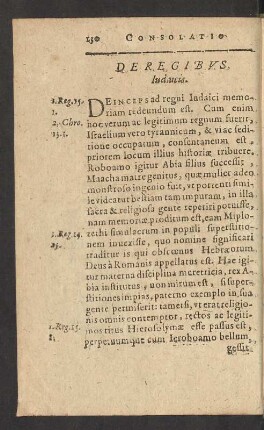 130 CONSOLATIO
DE REGIBVS
Iudaicis.
1. Reg. 15. DEINCEPS ad regni Iudaici memo-
1. riam redeundum est. Cum enim
2. Chro. hoc verum ac legitimum regnum fuerit,
13. 1. Israelium vero tyrannicum, & vi ac sedi-
tione occupatum, consentaneum est,
priorem locum illius historiæ tribuere.
Roboamo igitur Abia filius successit,
Maacha matre genitus, quæ mulier adeo
monstroso ingenio fuit, vt portenti simi-
le videatur bestiam tam impuram, in illa
sacra & religiosa gente reperiri potuisse,
nam memoriæ proditum est, eam Miplo-
1. Reg. 14. rethi simulacrum in populi superstitio-
23. nem invexisse, quo nomine significari
traditur is qui obscœnus Hebræorum
Deus à Romanis appellatus est. Hac igi-
tur materna disciplina meretricia, rex A-
bia institutus, non mirum est, si super-
stitiones impias, paterno exemplo in sua
gente permiserit: tametsi, vt erat religio-
nis omnis contemptor, rectos ac legiti-
1. Reg. 15. mos ritus Hierosolymæ esse passus est,
perpetuumque cum Ieroboamo bellum,
gessit